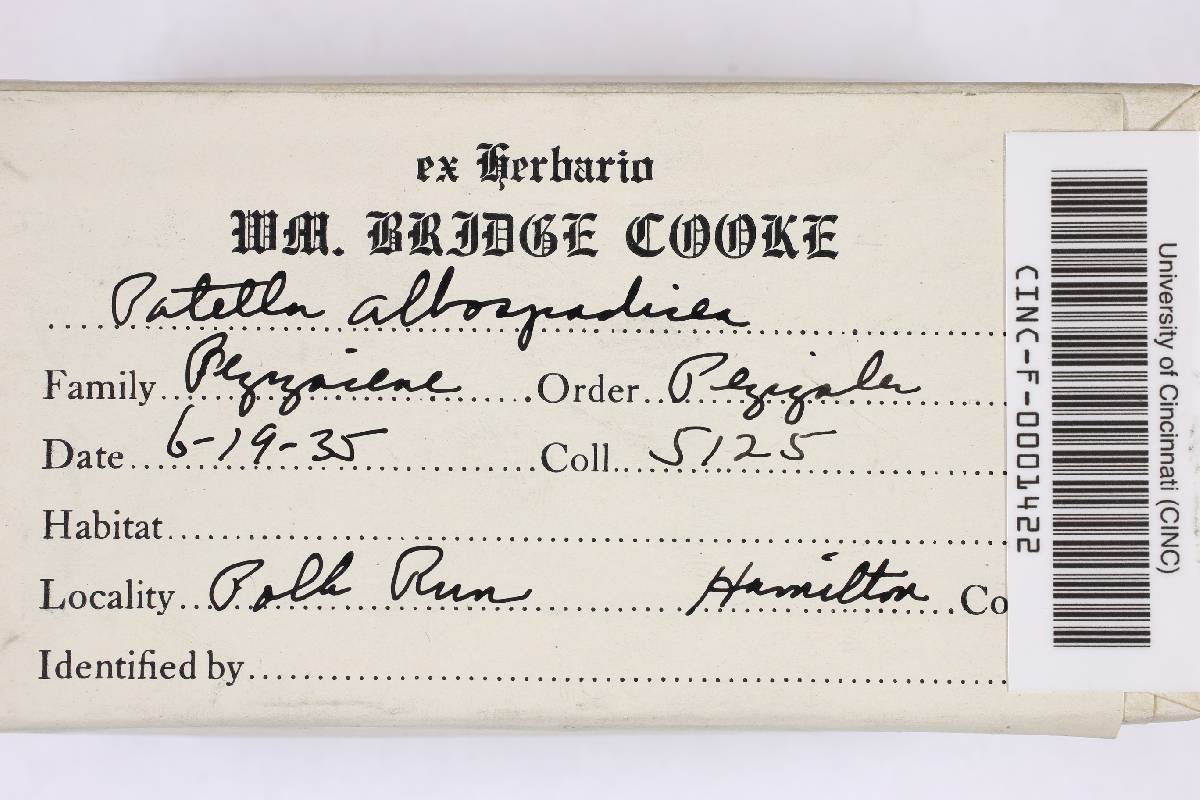 ex Herbario
WM. BRIDGE COOKE
Patella albospadicea
Family Pezizaceae Order Pezizales
Date 6-19-35 Coll. 5125
Habitat
Locality Polk Run Hamilton Co
Identified by
CINC-F-0001422
University of Cincinnati (CINC)